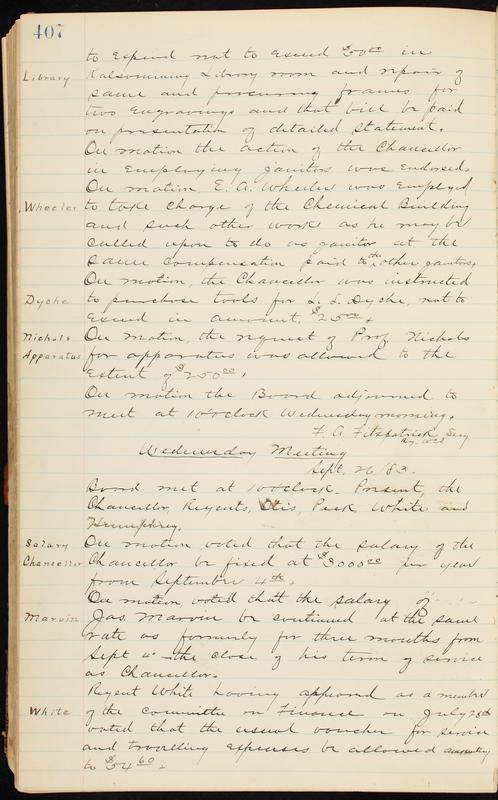 407
to expend not to exceed $50.00 in
Library
Kalsomining Library room and repair of
same and procuring frames for
two Engravings and that bill be paid
on presentation of detailed statement.
On motion the action of the Chancellor
in employing janitors was endorsed.
On motion E. A. Wheeler was employed
Wheeler
to take charge of the Chemical Building
and such other work as he may be
called upon to do as janitor at the
same compensation paid to the other janitors.
On motion, the Chancellor was instructed
Dyche
to purchase tools for L. L. Dyche, not to
exceed in amount, $25.00.
Nichols
Apparatus
On motion, the request of Prof. Nichols
for apparatus was allowed to the
extent of $250.00.
On motion the Board adjourned to
meet at 10 o'clock Wednesday morning.
F. A. Fitzpatrick Secy
Wednesday Meeting
Sept. 26/83.
Board met at 10 o'clock. Present, the
Chancellor, Regents, Otis, Peek White and
Humphrey.
Salary
Chancellor
On motion, voted that the salary of the
Chancellor be fixed at $3000.00 per year
from September 4th.
On motion, voted that the salary of
Marvin
Jas. Marvin be continued at the same
rate as formerly for three months from
Sept 4" the close of his term of service
as Chancellor.
Regent White having appeared as a member
White
of the Committee on Finance on July 28th
voted that the usual voucher for service
and travelling expenses be allowed amounting
to $54.60.